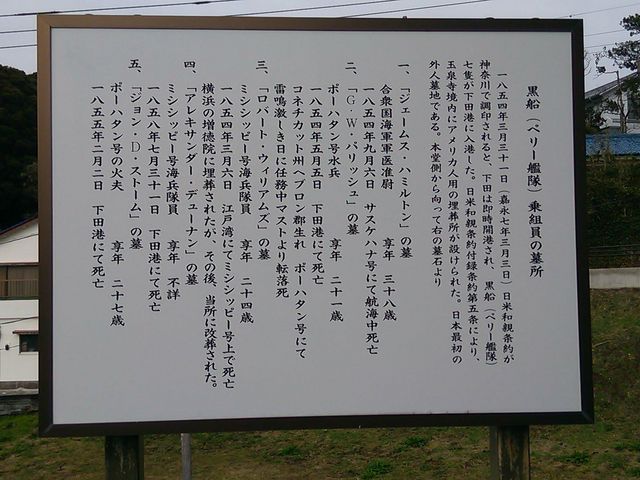 黒船（ペリー艦隊）乗組員の墓所
一八五四年三月三十一日（嘉永七年三月三日）日米和親条約が
神奈川で調印されると、下田は即時開港され、黒船（ペリー艦隊）
七隻が下田港に入港した。日米和親条約付録条約第五条により、
玉泉寺境内にアメリカ人用の埋葬所が設けられた。日本最初の
外人墓地である。本堂側から向って右の墓石より
一、「ジェームス・ハミルトン」の墓
合衆国海軍軍医准尉 享年 三十八歳
一八五四年九月六日 サスケハナ号にて航海中死亡
二、「G・W・パリッシュ」の墓
ポーハタン号水兵 享年 二十一歳
一八五四年五月五日 下田港にて死亡
コネチカット州ヘブロン郡生れ ポーハタン号にて
雷鳴激しき日に任務中マストより転落死
三、「ロバート・ウィリアムズ」の墓
ミシシッピー号海兵隊員 享年 二十四歳
一八五四年三月六日 江戸湾にてミシシッピー号上で死亡
横浜の増徳院に埋葬されたが、その後、当所に改葬された。
四、「アレキサンダー・デューナン」の墓
ミシシッピー号海兵隊員 享年 不詳
一八五八年七月三十一日 下田港にて死亡
五、「ジョン・D・ストーム」の墓
ポーハタン号の火夫 享年 二十七歳
一八五五年二月二日 下田港にて死亡